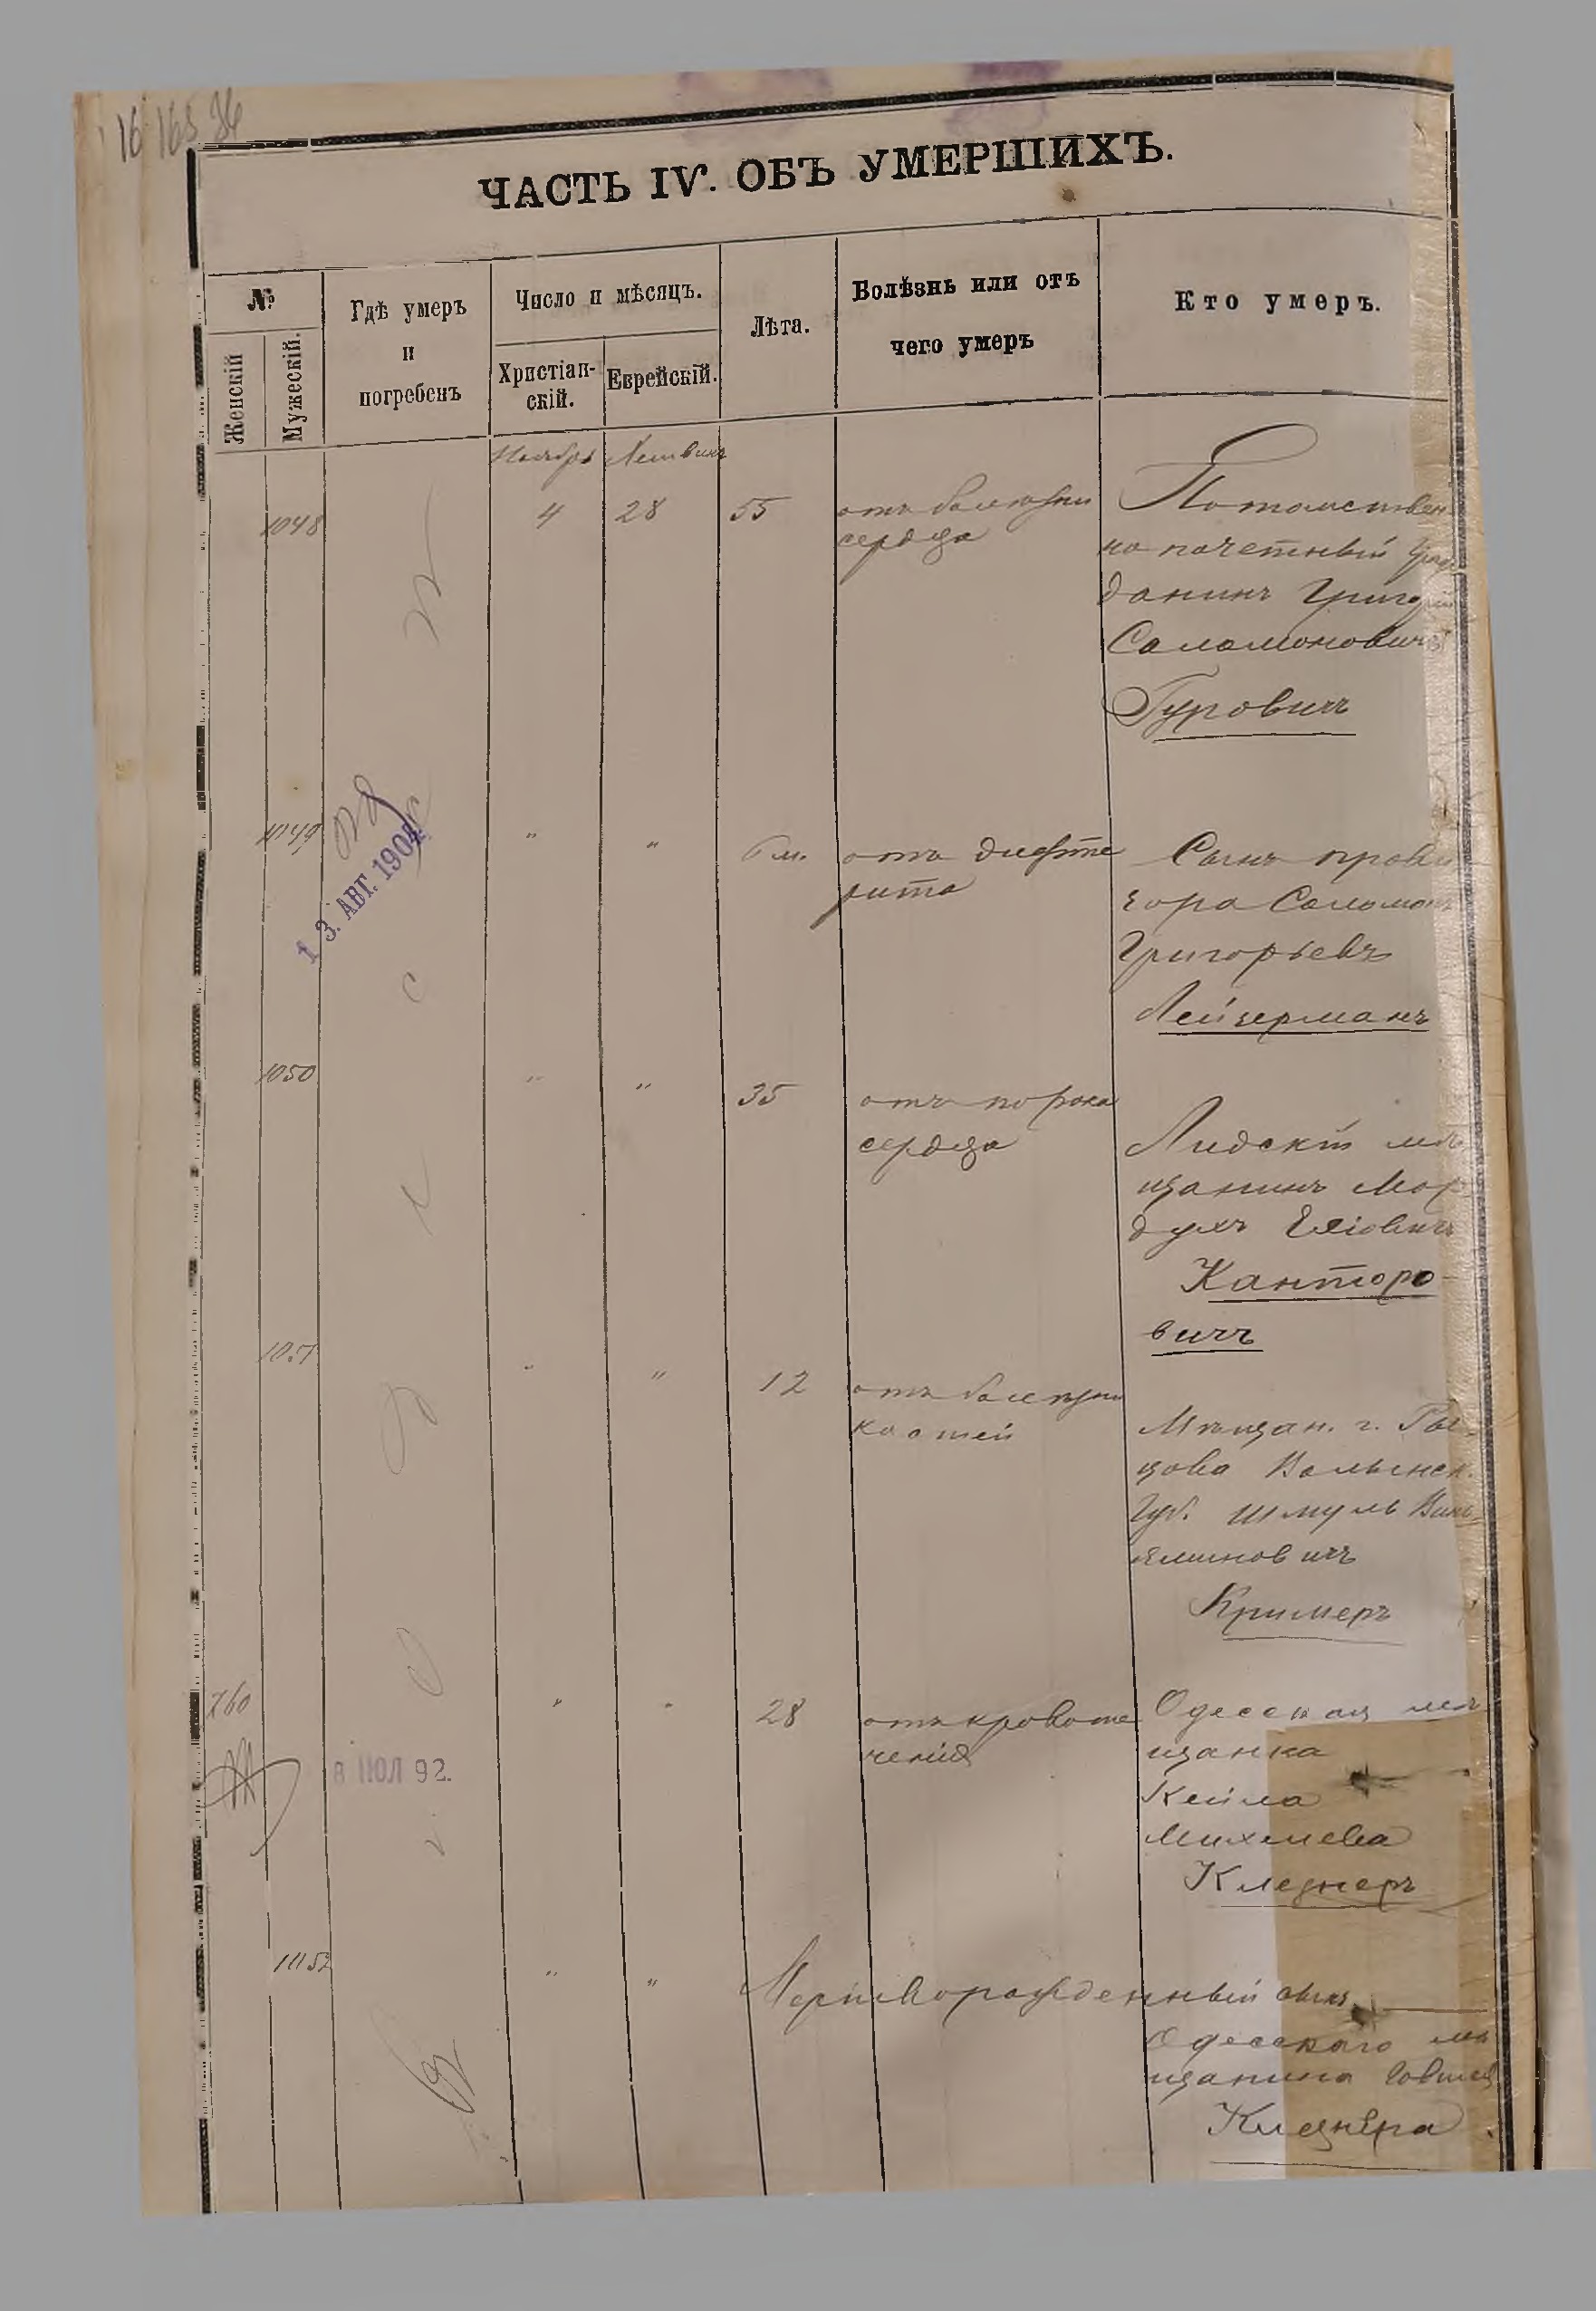 16 165 36
ЧАСТЬ IV. ОБЪ УМЕРШИХЪ.
№
Женскій
Мужескій.
Гдѣ умеръ
и
погребенъ
Число и мѣсяцъ.
Христіан-
скій.
Еврейскій.
Лѣта.
Болѣзнь или отъ
чего умеръ
Кто умеръ.
Ноябрь
1048
4
28
55
отъ болѣзни
сердца
Потомствен
но почетный Граж
данинъ Григорій
Соломоновичъ
Гуровичъ
1049
13. АВГ. 1904
"
"
6 м.
отъ дифте
рита
Сынъ прови
зора Соломонъ
Григорьевъ
Лейзерманъ
1050
"
"
35
отъ порока
сердца
Лидскій мѣ
щанинъ Мор
духъ Еліовичъ
Канторо-
вичъ
1051
"
"
12
отъ болѣзни
костей
Мѣщан. г.
Волынск.
Губ. Шмуль Винь
яминовичъ
Кримеръ
760
8 ІЮЛ 92.
"
"
28
отъ кровоте
ченія
Одесская мѣ
щанка
Кейла
Михелева
Клезнеръ
1052
"
"
Мертворожденный сынъ
Одесскаго мѣ
щанина
Клезнера
О д е с с а